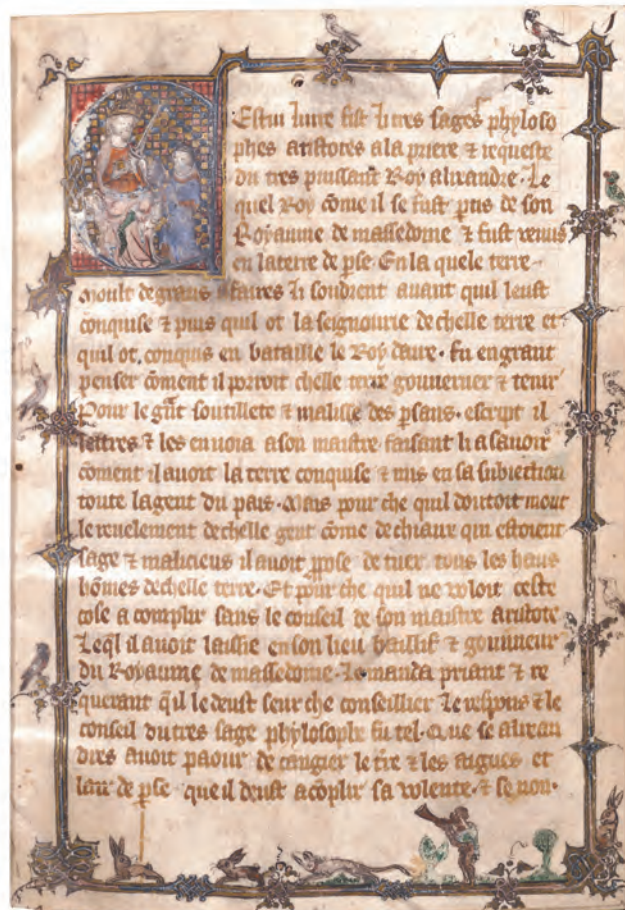 Cestui liure fist li tres sages phyloso
phes aristotes a la priere ⁊ requeste
du tres puissant Roy alixandre. Le
quel Roy cōme il se fust ptis de son
Royaume de massedoine ⁊ fust venus
en la terre de pse. En la quele terre
moult de grans affaires li sourdrent auant quil leust
conquise ⁊ puis quil ot la seignourie de chelle terre et
quil ot conquis en bataille le Roy daire. fu en grant
penser cōment il porroit chelle terre gouuerner ⁊ tenir
Pour le gāt soutillete ⁊ malisse des psans. escript il
lettres ⁊ les enuoia a son maistre faisant li a sauoir
cōment il auoit la terre conquise ⁊ mis en sa subiection
toute la gent du pais. Mais pour che quil doutoit mout
le reuelement de chelle gent cōme de chiaux qui estoient
sage ⁊ malicieus il auoit ppose de tuer tous les haus
hōmes de chelle terre. Et pour che quil ne voloit ceste
cose acomplir sans le conseil de son maistre aristote
Leql il auoit laissie en son lieu baillif ⁊ gouuneur
du Royaume de massedoine. Le manda priant ⁊ re
querant q̄il le deust seur che conseillier Le respons ⁊ le
conseil du tres sage phylosophe fu tel. Que se alixan
dres auoit paour de cangier le tre ⁊ les aigues et
lair de pse que il deust acōplir sa volente. ⁊ se non.